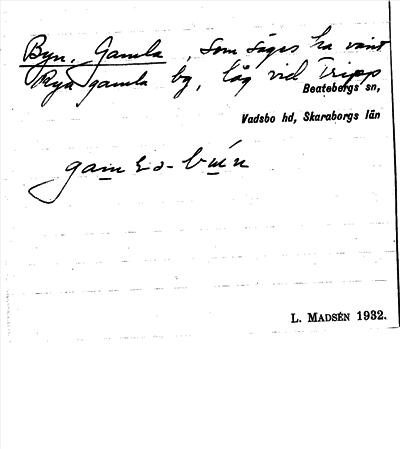 Byn, Gamla, som säges ha varit
Rya gamla by, låg vid Tripp
Beatebergs sn,
Vadsbo hd, Skaraborgs län
L. MADSÉN 1932.